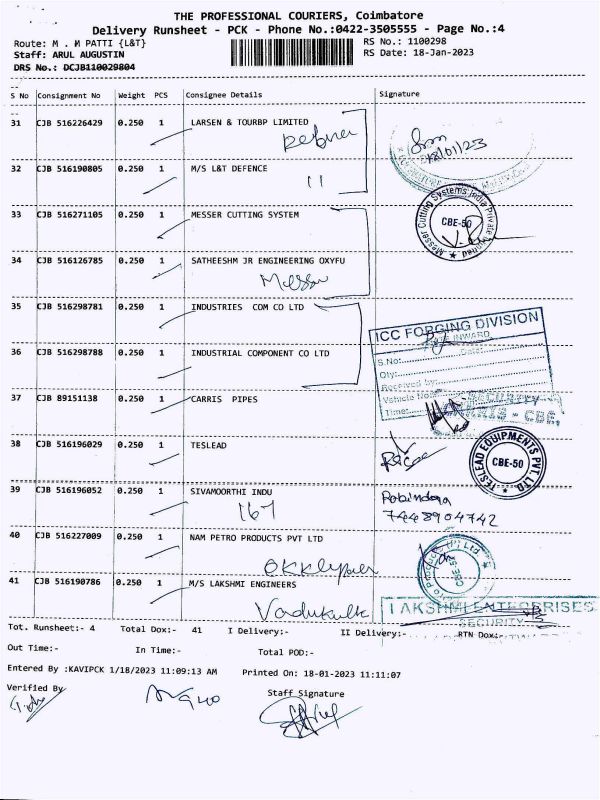 THE PROFESSIONAL COURIERS, Coimbatore
Delivery Runsheet - PCK - Phone No.:0422-3505555 - Page No.:4
Route: M . M PATTI {L&T}
RS No.: 1100298
Staff: ARUL AUGUSTIN
RS Date: 18-Jan-2023
DRS No.: DCJB110029804
S No Consignment No Weight PCS Consignee Details Signature
31 CJB 516226429 0.250 1 LARSEN & TOURBP LIMITED
18/01/23
32 CJB 516190805 0.250 1 M/S L&T DEFENCE
11
33 CJB 516271105 0.250 1 MESSER CUTTING SYSTEM
Messer Cutting Systems India Private Limited
CBE-50
34 CJB 516126785 0.250 1 SATHEESHM JR ENGINEERING OXYFU
Messer
35 CJB 516298781 0.250 1 INDUSTRIES COM CO LTD
ICC FORGING DIVISION
INWARD
S.No: Date:
Qty:
Received by:
Vehicle No:
Time:
36 CJB 516298788 0.250 1 INDUSTRIAL COMPONENT CO LTD
37 CJB 89151138 0.250 1 CARRIS PIPES
SECURITY
CARRIS - CBE,
38 CJB 516196029 0.250 1 TESLEAD
TESLEAD EQUIPMENTS PVT. LTD
CBE-50
39 CJB 516196052 0.250 1 SIVAMOORTHI INDU
167
7448904742
40 CJB 516227009 0.250 1 NAM PETRO PRODUCTS PVT LTD
41 CJB 516190786 0.250 1 M/S LAKSHMI ENGINEERS
LAKSHMI ENTERPRISES
SECURITY
Tot. Runsheet:- 4 Total Dox:- 41 I Delivery:- II Delivery:- RTN Dox:-
Out Time:- In Time:- Total POD:-
Entered By :KAVIPCK 1/18/2023 11:09:13 AM Printed On: 18-01-2023 11:11:07
Verified By Staff Signature